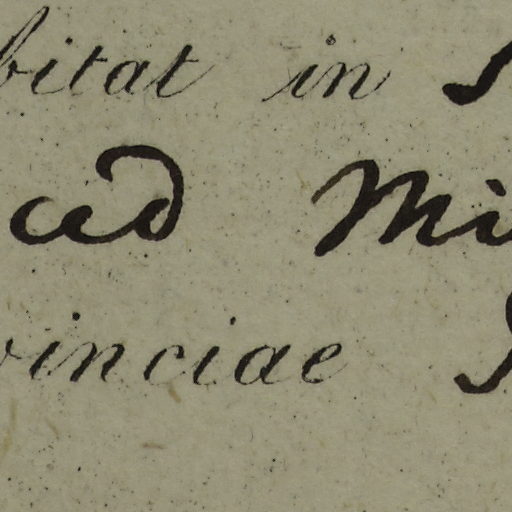 bitat in
ad Mi
vinciae